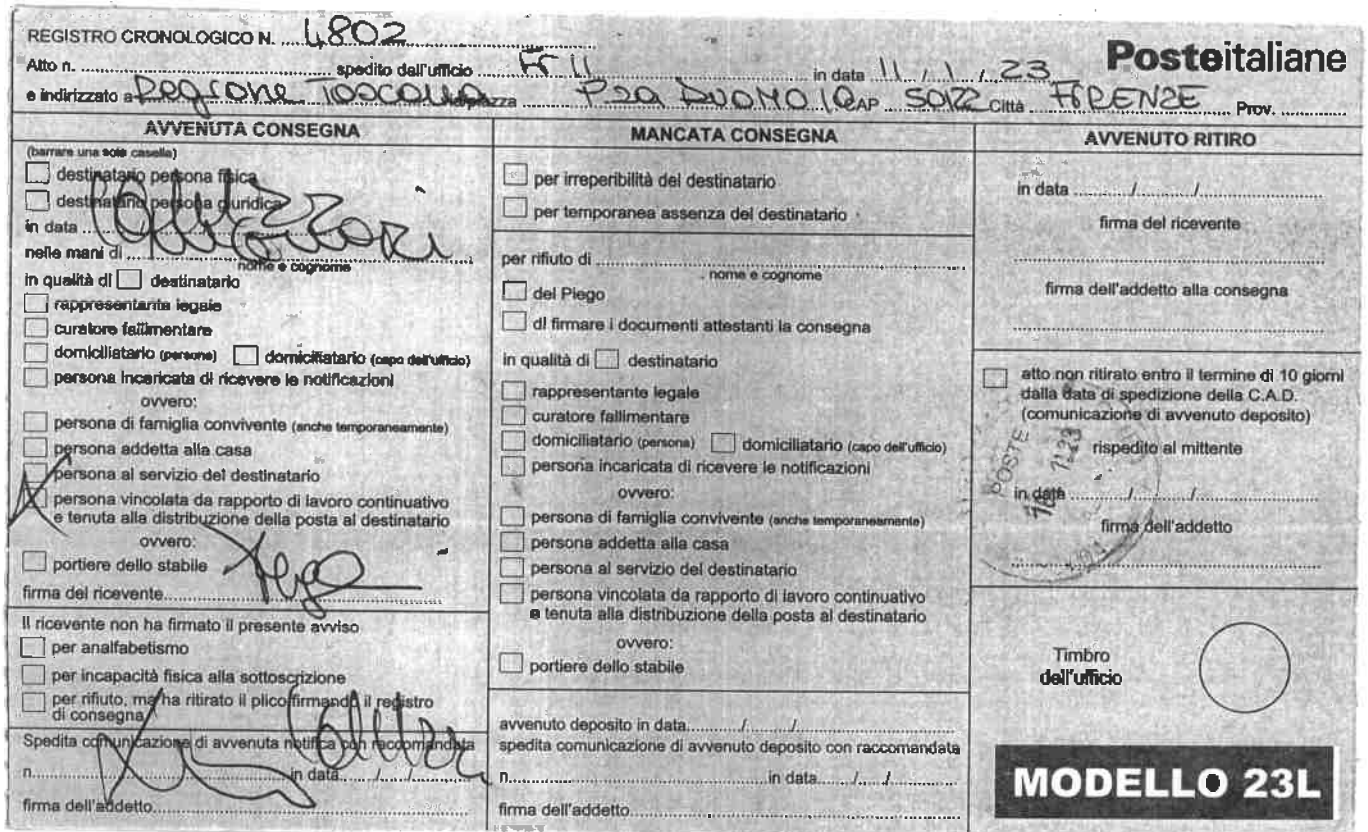 REGISTRO CRONOLOGICO N. 4802
Posteitaliane
Atto n. spedito dall'ufficio FI 11 in data 11/1/23
e indirizzato a Regione Toscana P.za DUOMO 10 CAP 50122 Città FIRENZE Prov.
AVVENUTA CONSEGNA
(barrare una sola casella)
destinatario persona fisica
destinatario persona giuridica
in data
nelle mani di
nome e cognome
in qualità di destinatario
rappresentante legale
curatore fallimentare
domiciliatario (persona) domiciliatario (capo dell'ufficio)
persona incaricata di ricevere le notificazioni
ovvero:
persona di famiglia convivente (anche temporaneamente)
persona addetta alla casa
persona al servizio del destinatario
persona vincolata da rapporto di lavoro continuativo
e tenuta alla distribuzione della posta al destinatario
ovvero:
portiere dello stabile
firma del ricevente
Il ricevente non ha firmato il presente avviso
per analfabetismo
per incapacità fisica alla sottoscrizione
per rifiuto, ma ha ritirato il plico firmando il registro
di consegna
Spedita comunicazione di avvenuta notifica con raccomandata
n. in data / /
firma dell'addetto
MANCATA CONSEGNA
per irreperibilità del destinatario
per temporanea assenza del destinatario
per rifiuto di
nome e cognome
del Piego
di firmare i documenti attestanti la consegna
in qualità di destinatario
rappresentante legale
curatore fallimentare
domiciliatario (persona) domiciliatario (capo dell'ufficio)
persona incaricata di ricevere le notificazioni
ovvero:
persona di famiglia convivente (anche temporaneamente)
persona addetta alla casa
persona al servizio del destinatario
persona vincolata da rapporto di lavoro continuativo
e tenuta alla distribuzione della posta al destinatario
ovvero:
portiere dello stabile
avvenuto deposito in data / /
spedita comunicazione di avvenuto deposito con raccomandata
n. in data / /
firma dell'addetto
AVVENUTO RITIRO
in data / /
firma del ricevente
firma dell'addetto alla consegna
atto non ritirato entro il termine di 10 giorni
dalla data di spedizione della C.A.D.
(comunicazione di avvenuto deposito)
rispedito al mittente
POSTE
in data / /
firma dell'addetto
Timbro
dell'ufficio
MODELLO 23L